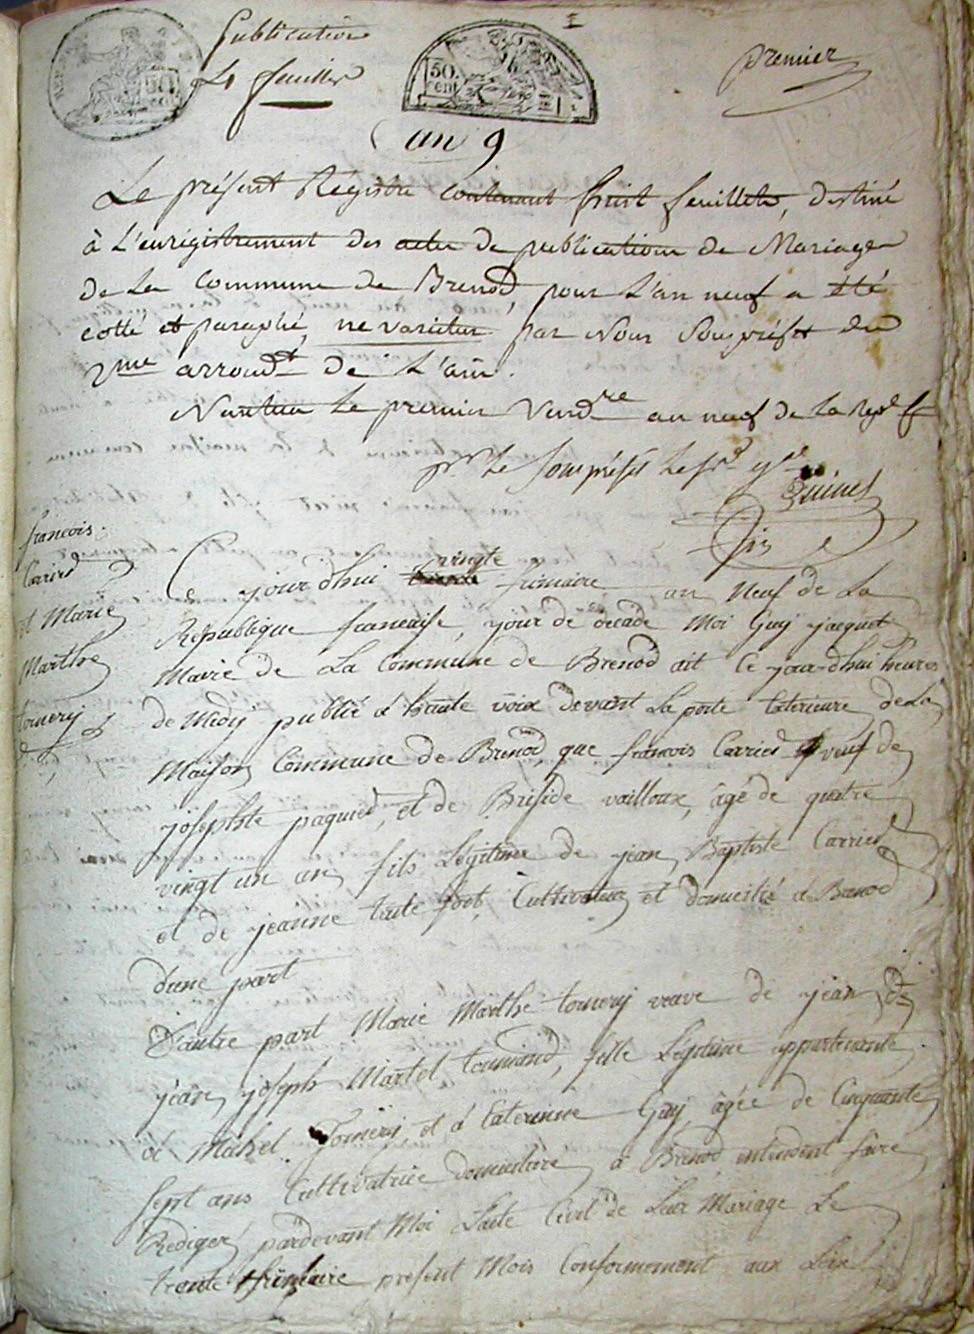 Publication
4 feuillet
50 cen
50 cen
premier
an 9
Le présent Registre contenant huit feuillets, destiné
à L'enregistrement des actes de publications de Mariage
de La Commune de Brenod, pour L'an neuf a été
cotté et paraphé, ne varietur par Nous Souspréfet du
2me arrondt de L'ain.
Nantua Le premier Vendre an neuf de La Rep
pr Le Souspréfet Le
françois
Carrier
et Marie
Marthe
tournery
Ce jourdhui vingte frimaire an Neuf de La
Republique francaise, jour de décade Moi Guy jacquet
Maire de La Commune de Brenod ait Ce jourdhui heures
de Midy publié a haute voix devant La porte Exterieure de La
Maison Commune de Brenod, que françois Carrier veuf de
josephte paquier, et de Briside vailloux, âgé de quatre
vingt un an fils Légitime de jean Baptiste Carrier
et de jeanne tute foot, Cultivateur et domicilié a Brenod
dune part
D'autre part Marie Marthe tournery veuve de jean de
jean joseph Martel tournand, fille Légitime appartenante
a Michel tournery, et á Caterinne Guy, âgée de Cinquante
sept ans Cultivatrice domicilière a Brenod entendent faire
Rediger pardevant Moi Lacte Civil de Leur Mariage Le
trente frimaire present Mois Conformement aux Loix